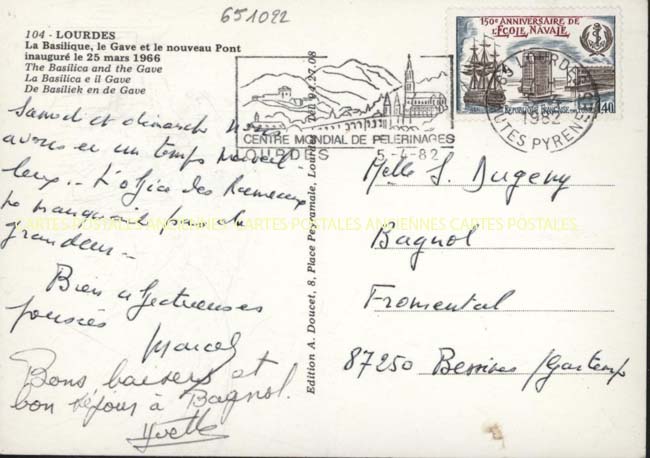 651022
104 - LOURDES
La Basilique, le Gave et le nouveau Pont
inauguré le 25 mars 1966
The Basilica and the Gave
La Basilica e il Gave
De Basiliek en de Gave
150e ANNIVERSAIRE DE
L'ÉCOLE NAVALE
REPUBLIQUE FRANÇAISE
1,40
LOURDES
1982
HTES PYRENEES
CENTRE MONDIAL DE PELERINAGES
LOURDES 5-4-82
Samedi et dimanche nous
avons eu un temps merveil-
leux.. L'office des Rameaux
ne manquait pas de
grandeur..
Bien affectueuses
pensées
Marcel
Bons baisers et
bon séjour à Bagnol.
Yvette
Edition A. Doucet, 8, Place Peyramale, Lourdes Tél. 94.27.08
Melle S. Dugeny
Bagnol
Fromental
87250 Bessines/Gartempe
CARTES POSTALES ANCIENNES CARTES POSTALES ANCIENNES CARTES POSTALES